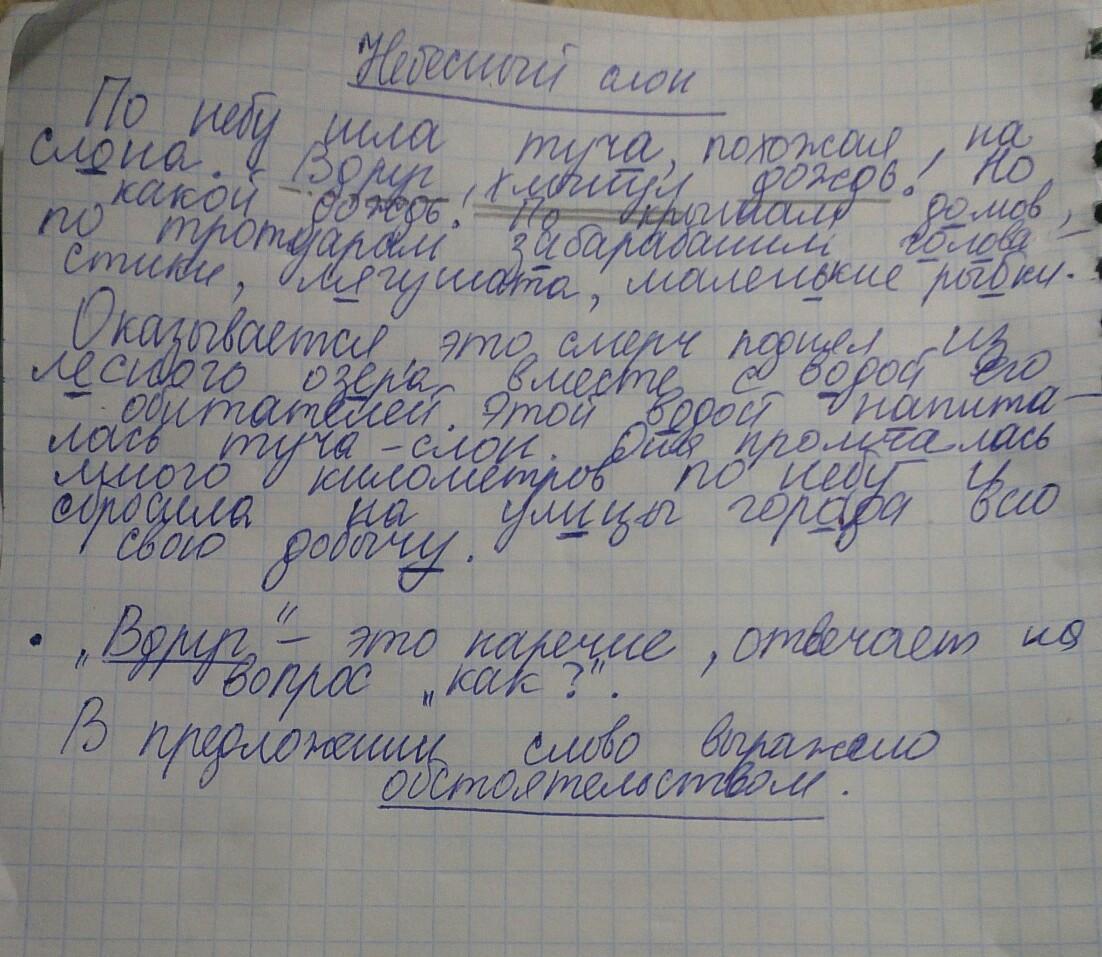 Небесный слон
По небу шла туча, похожая на
слона. Вдруг хлынул дождь! Но
какой дождь! По крышам домов,
по тротуарам забарабанили голова-
стики, лягушата, маленькие рыбки.
Оказывается, это смерч поднял из
лесного озера вместе с водой его
обитателей. Этой водой напита-
лась туча-слон. Она промчалась
много километров по небу и
сбросила на улицы города всю
свою добычу.
• „Вдруг" – это наречие, отвечает на
вопрос „как?".
В предложении слово выражено
обстоятельством.